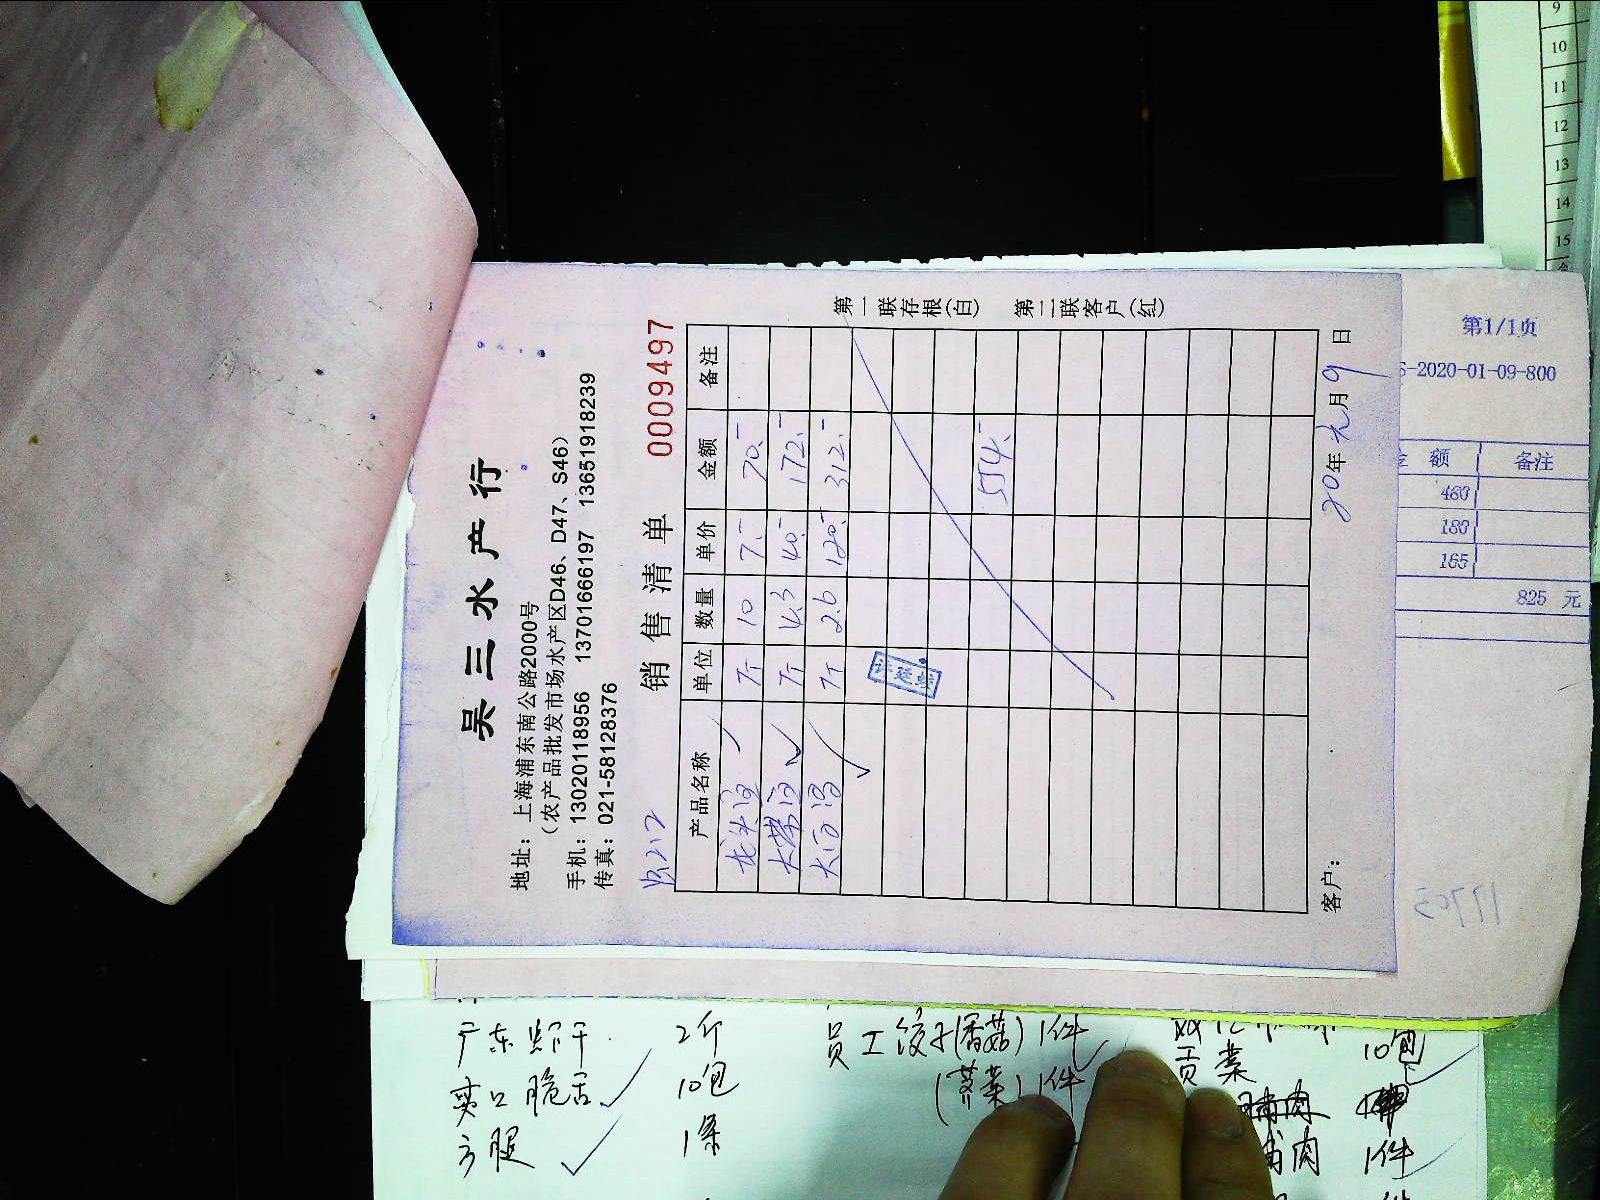 吴三水产行
地址：上海浦东南公路2000号
（农产品批发市场水产区D46、D47、S46）
手机：13020118956 13701666197 13651918239
传真：021-58128376
销售清单 0009497
产品名称 单位 数量 单价 金额 备注
斤 10 7.- 70.-
斤 4.3 40.- 172.-
斤 2.6 120.- 312.-
554.-
客户： 20年元月9日
第一联存根(白) 第二联客户(红)
第1/1页
-2020-01-09-800
额 备注
480
180
165
825 元
9
10
11
12
13
14
15
2斤
10包
方腿 1条
员工饺子(香菇) 1件
(荠菜) 1件
贡菜 10包
肉 1件